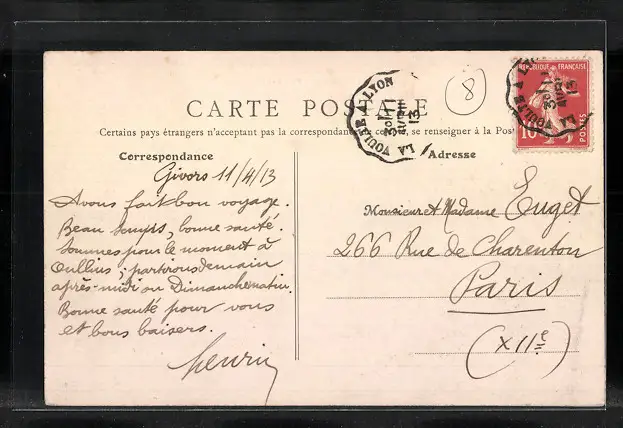 8
CARTE POSTALE
Certains pays étrangers n'acceptant pas la correspondance se renseigner à la Post
LA VOULTE A LYON
11
AVRIL
13
REPUBLIQUE FRANÇAISE
10
POSTES
LA VOULTE A LY
AVRI
13
Correspondance
Givors 11/4/13
Avons fait bon voyage.
Beau temps, bonne santé.
Sommes pour le moment à
Oullins; partirons demain
après-midi ou Dimanche matin.
Bonne santé pour vous
et bons baisers.
Henri
Adresse
Monsieur et Madame Euget
266 Rue de Charenton
Paris
(XIIe)